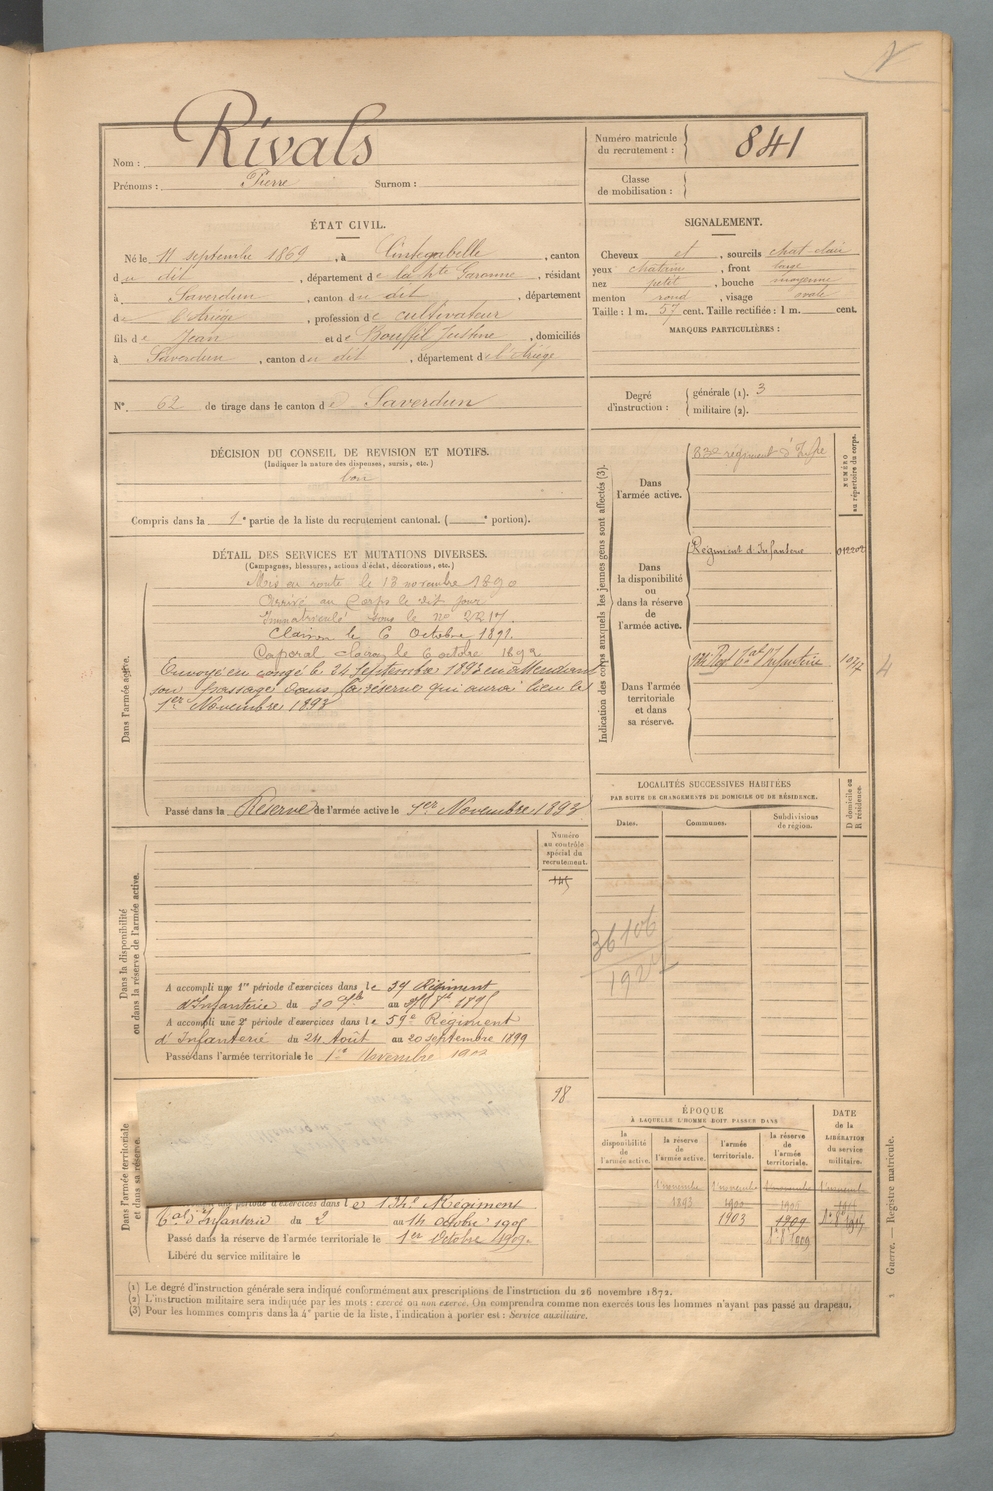 Nom : Rivals
Prénoms : Pierre Surnom :
Numéro matricule du recrutement : 841
Classe de mobilisation :
ÉTAT CIVIL.
Né le 11 septembre 1869, à Cintegabelle, canton
du dit, département de la hte Garonne, résidant
à Saverdun, canton du dit, département
de l'Ariège, profession de cultivateur
fils de Jean et de Bouffil Justine, domiciliés
à Saverdun, canton du dit, département de l'Ariège
SIGNALEMENT.
Cheveux et, sourcils chat clair
yeux châtrins, front large
nez petit, bouche moyenne
menton rond, visage ovale
Taille : 1 m. 57 cent. Taille rectifiée : 1 m. cent.
MARQUES PARTICULIÈRES :
N° 62 de tirage dans le canton de Saverdun
Degré d'instruction : générale (1). 3
militaire (2).
DÉCISION DU CONSEIL DE REVISION ET MOTIFS.
(Indiquer la nature des dispenses, sursis, etc.)
bon
Compris dans la 1e partie de la liste du recrutement cantonal. ( e portion).
DÉTAIL DES SERVICES ET MUTATIONS DIVERSES.
(Campagnes, blessures, actions d'éclat, décorations, etc.)
Dans l'armée active.
Mis en route le 13 novembre 1890
Arrivé au Corps le dit jour
Immatriculé sous le no 2217.
Clairon le 6 Octobre 1891.
Caporal clairon le 6 octobre 1892
Envoyé en congé le 24 Septembre 1893 en attendant
son passage dans la réserve qui aura lieu le
1er Novembre 1893
Passé dans la Réserve de l'armée active le 1er Novembre 1893
Indication des corps auxquels les jeunes gens sont affectés (3).
NUMÉRO au répertoire du corps.
Dans l'armée active.
83e régiment d'Infie
Dans la disponibilité ou dans la réserve de l'armée active.
Régiment d'Infanterie 012202
Dans l'armée territoriale et dans sa réserve.
134e Regt tal d'Infanterie
4
LOCALITÉS SUCCESSIVES HABITÉES
PAR SUITE DE CHANGEMENTS DE DOMICILE OU DE RÉSIDENCE.
Dates. Communes. Subdivisions de région. D domicile ou R résidence.
36106
Numéro au contrôle spécial du recrutement.
145
Dans la disponibilité ou dans la réserve de l'armée active.
A accompli une 1re période d'exercices dans le 59 Régiment
d'Infanterie du 30 au 1895
A accompli une 2e période d'exercices dans le 59e Régiment
d'Infanterie du 24 Août au 20 septembre 1899
Passé dans l'armée territoriale le 1er Novembre 1903
18
Dans l'armée territoriale et dans sa réserve.
une période d'exercices dans le 134e Régiment
tal d'Infanterie du 2 au 14 octobre 1905
Passé dans la réserve de l'armée territoriale le 1er Octobre 1909
Libéré du service militaire le
ÉPOQUE
À LAQUELLE L'HOMME DOIT PASSER DANS
la disponibilité de l'armée active. la réserve de l'armée active. l'armée territoriale. la réserve de l'armée territoriale.
DATE de la LIBÉRATION du service militaire.
1er novembre 1er novembre 1er novembre 1er novembre
1893 1900
1903 1909
1er 8bre 1909
Guerre. — Registre matricule.
(1) Le degré d'instruction générale sera indiqué conformément aux prescriptions de l'instruction du 26 novembre 1872.
(2) L'instruction militaire sera indiquée par les mots : exercé ou non exercé. On comprendra comme non exercés tous les hommes n'ayant pas passé au drapeau.
(3) Pour les hommes compris dans la 4e partie de la liste, l'indication à porter est : Service auxiliaire.